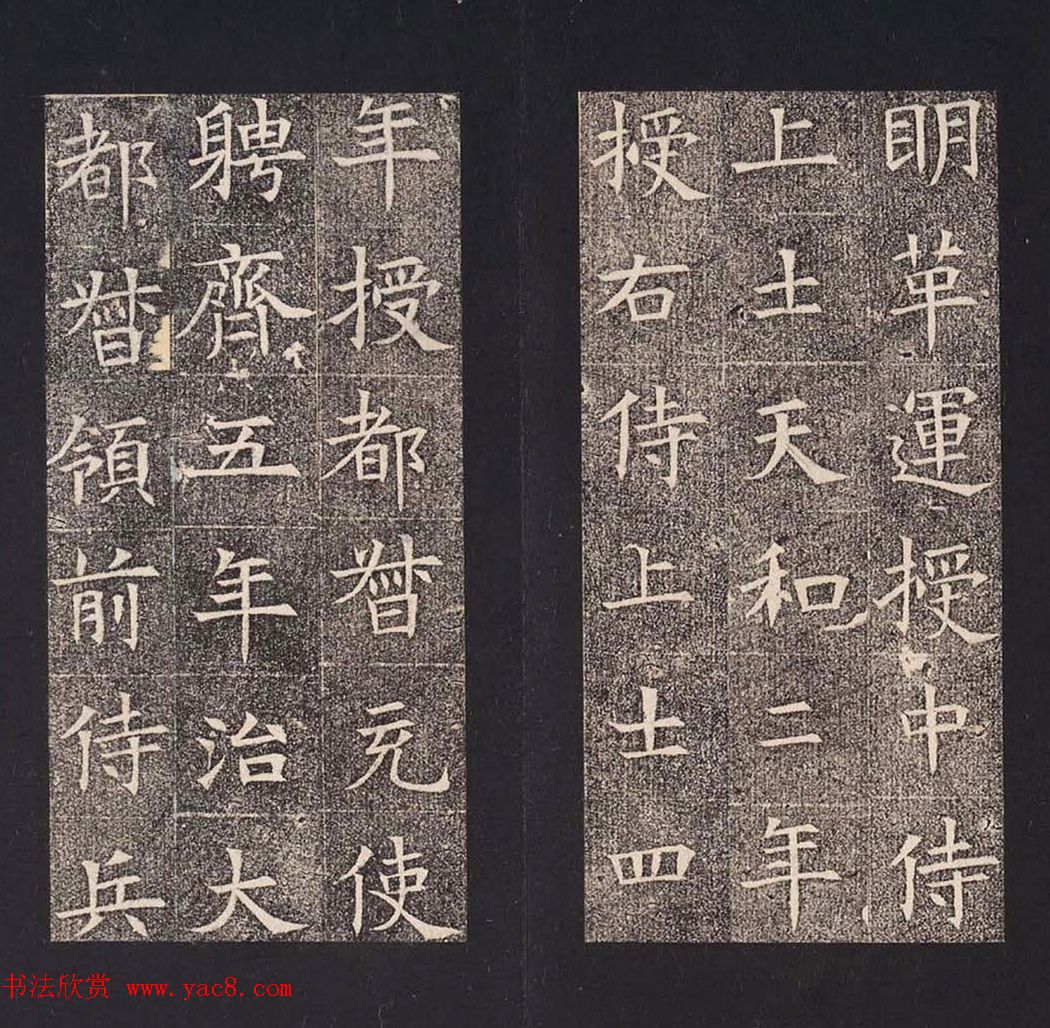 明革運授中侍
上士天和二年
授右侍上士四
年授都督充使
聘齊五年治大
都督領前侍兵
书法欣赏 www.yac8.com